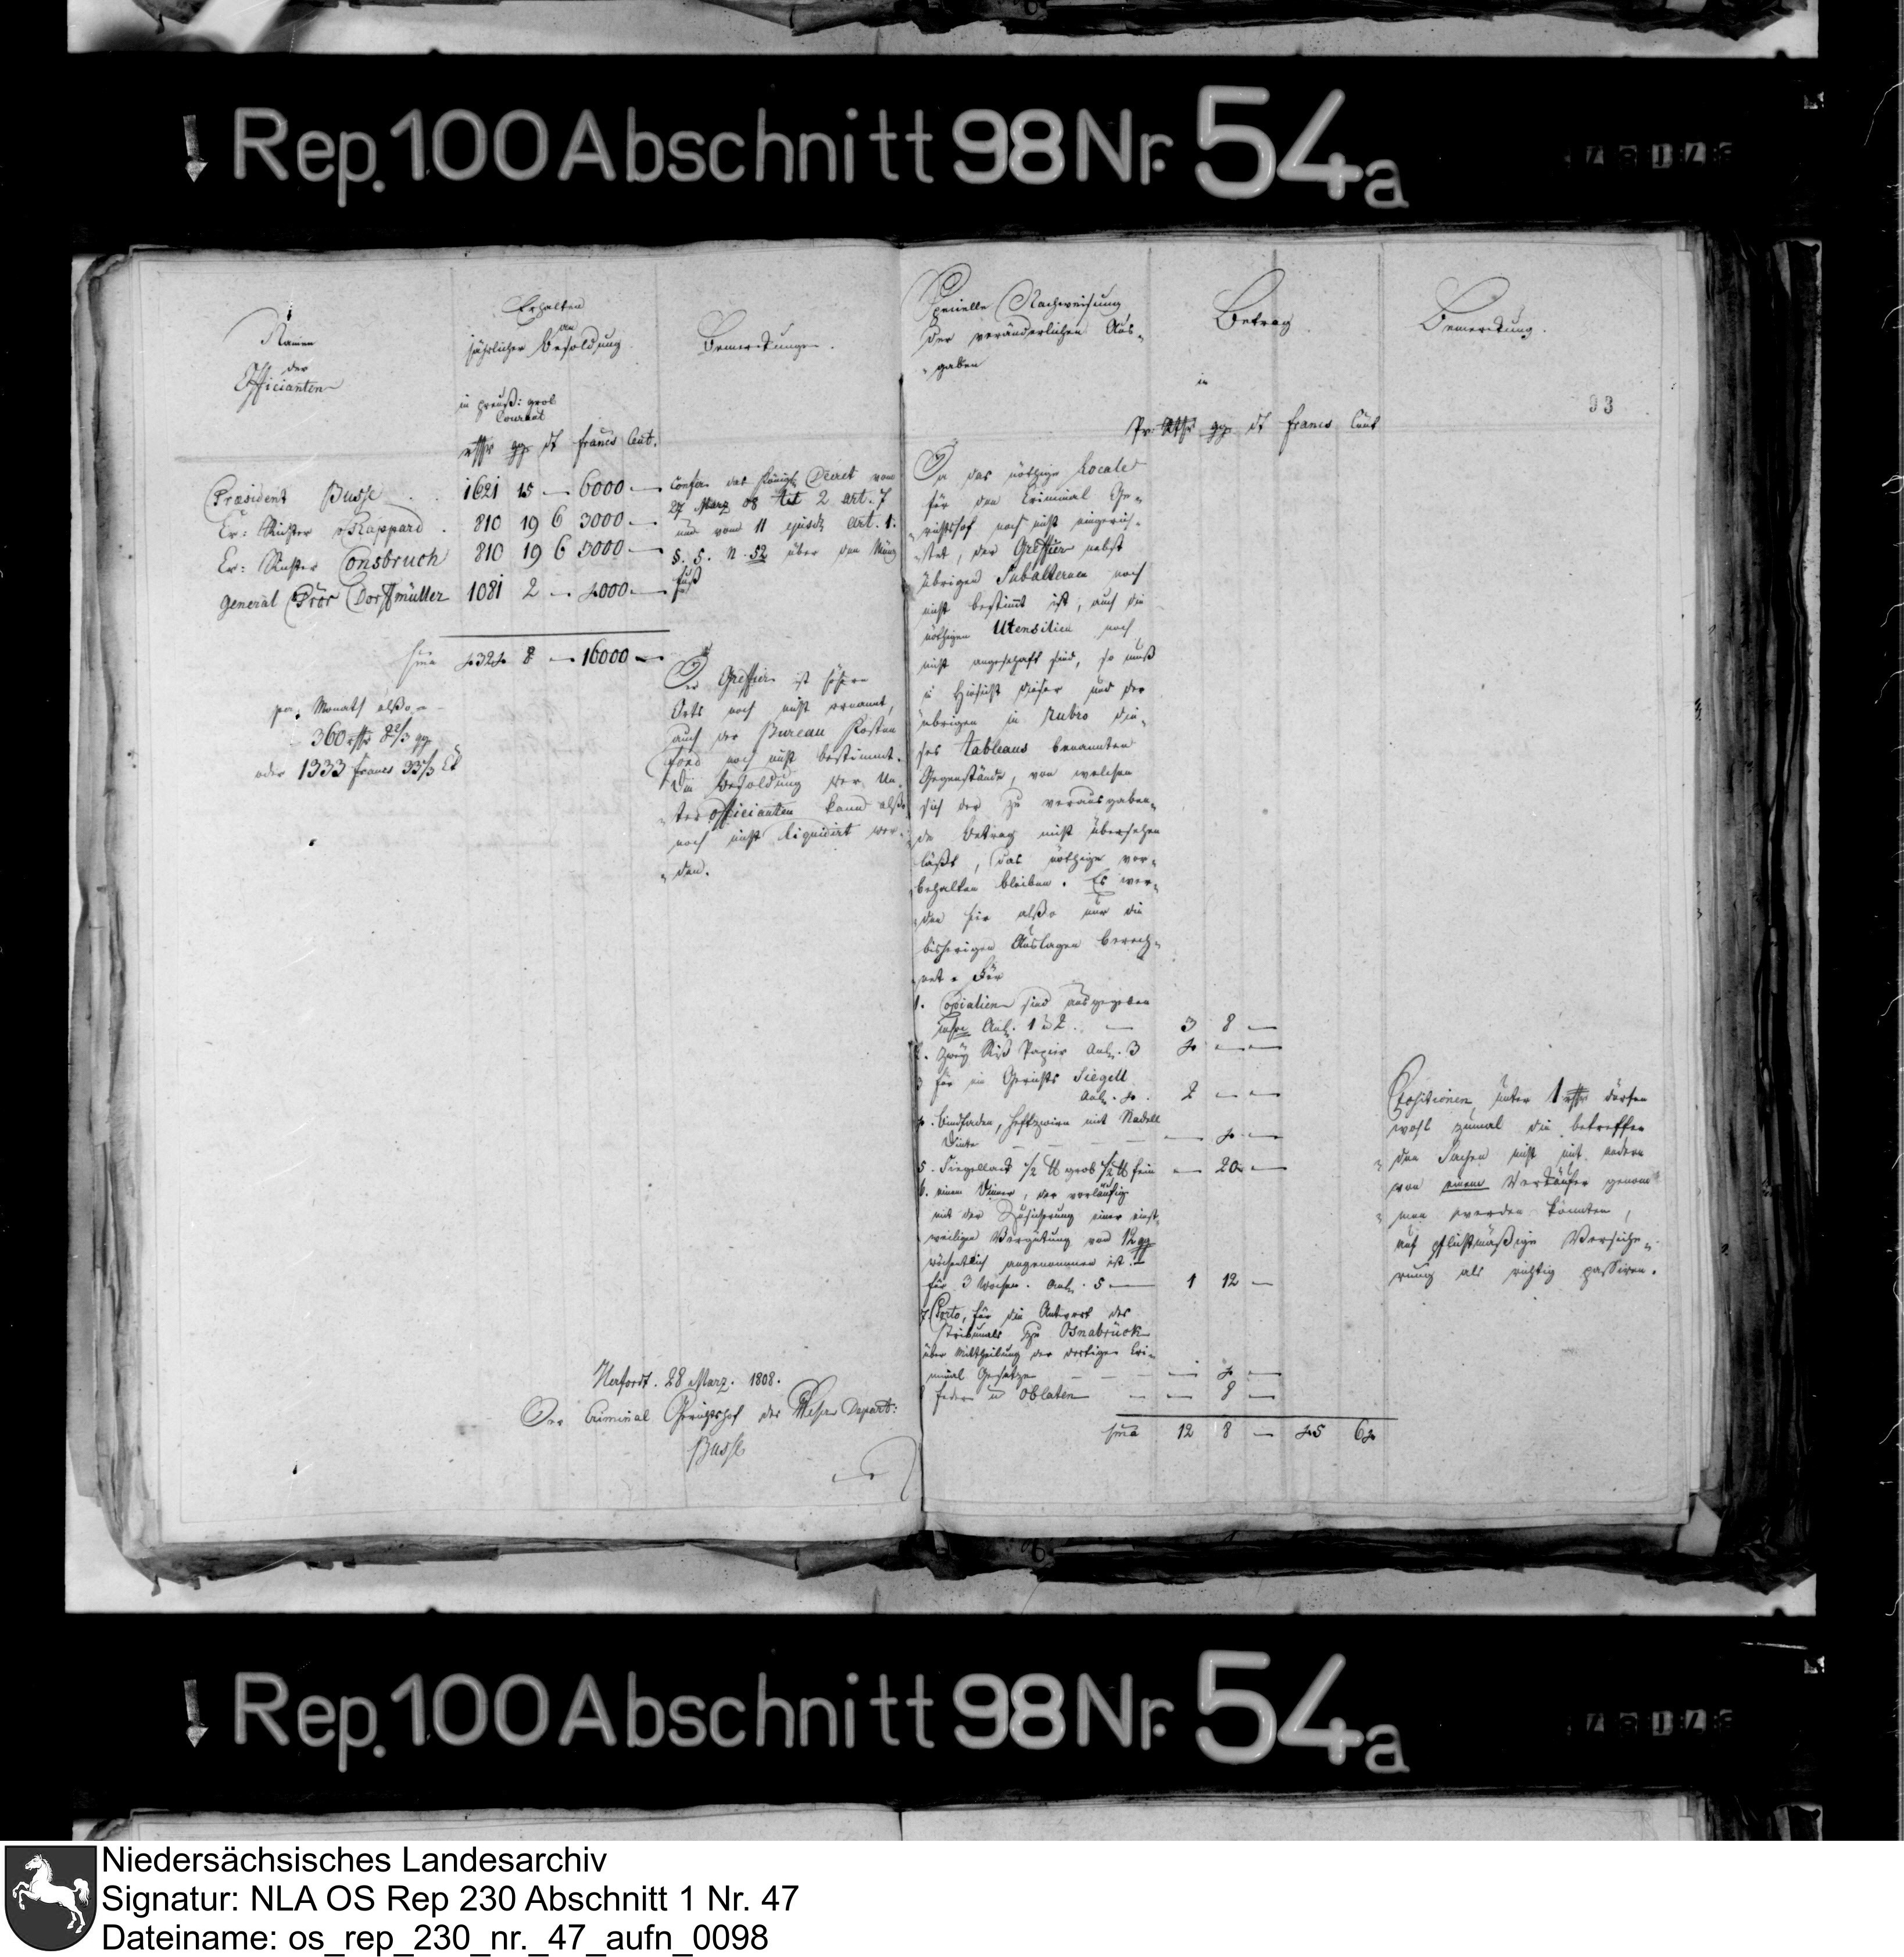 Rep. 100 Abschnitt 98 Nr. 54a
Namen
der
Officianten
Erhalten
an
jährlicher Besoldung
in preuß: grob
Courant
rthr ggr d francs Cent.
Bemerkungen.
Præsident Busse 1621 15 — 6000 —
Cr: Richter v Rappard 810 19 6 3000 —
Cr: Richter Consbruch 810 19 6 3000 —
General Pror Dorffmüller 1081 2 — 4000 —
Sma 4324 8 — 16000 —
per Monath also
360 rthr 8 2/3 ggr
oder 1333 francs 33 1/3 Ct
Confer. das Königl. Decret vom
27 Marz 08 tit 2 art. 7
und vom 11 ejusd. art. 1.
§. 5. N. 52 über den Münz
fuß
Der Greffier ist höhern
Orts noch nicht ernannt,
auch der Bureau Kosten
fond noch nicht bestimmt.
Die Besoldung der Un-
ter officianten kann also
noch nicht liquidirt wer-
den.
Herfordt. 28 Marz. 1808.
Der Criminal Gerichtshof des Weser Depart:
Busse
Specielle Nachweisung
der veränderlichen Aus-
gaben
Betrag
in
Pr: Rthr ggr d francs Cent
Bemerkung.
93
Da das nöthige Locale
für den Criminal Ge-
richtshof noch nicht eingerich-
tet, der Greffier nebst
übrigen Subalternen noch
nicht bestimt ist, auch die
nöthigen Utensilien noch
nicht angeschaft sind, so muß
in Hinsicht dieser und der
übrigen in Rubro die-
ses tableaus benannten
Gegenstände, von welchen
sich der zu verausgaben-
de Betrag nicht übersehen
läßt, das nöthige vor-
behalten bleiben. Es wer-
den hir also nur die
bisherigen Auslagen berech-
net. Für
1. Copialien sind ausgegeben
Anl. 1 u 2. — 3 8 —
2. zwey Riß Papier Anl. 3 4 — —
3 für ein Gerichts Siegell
Anl. 4. 2 — —
4. Bindfaden, Heftzwirn mit Nadell
Dinte — — 4 —
5. Siegellack 1/2 ℔ grob 1/2 ℔ fein — 20 —
6. einem Diener, der vorläufig
mit der Zusicherung einer einst-
weiligen Vergütung von 12 ggr
wöchentlich angenommen ist.
für 3 Wochen. Anl. 5 — 1 12 —
7 Porto, für die Antwort des
Tribunals zu Osnabrück
über Mittheilung der dortigen Cri-
minal Gesetze — — 4 —
8 Federn u Oblaten — — 8 —
Sma 12 8 — 45 64
Positionen unter 1 rthr dürfen
wohl zumal die betreffen
den Sachen nicht mit andern
von einem Verkäufer genom
men werden konnten,
auf pflichtmäßige Versiche-
rung als richtig passiren.
Rep. 100 Abschnitt 98 Nr. 54a
Niedersächsisches Landesarchiv
Signatur: NLA OS Rep 230 Abschnitt 1 Nr. 47
Dateiname: os_rep_230_nr._47_aufn_0098